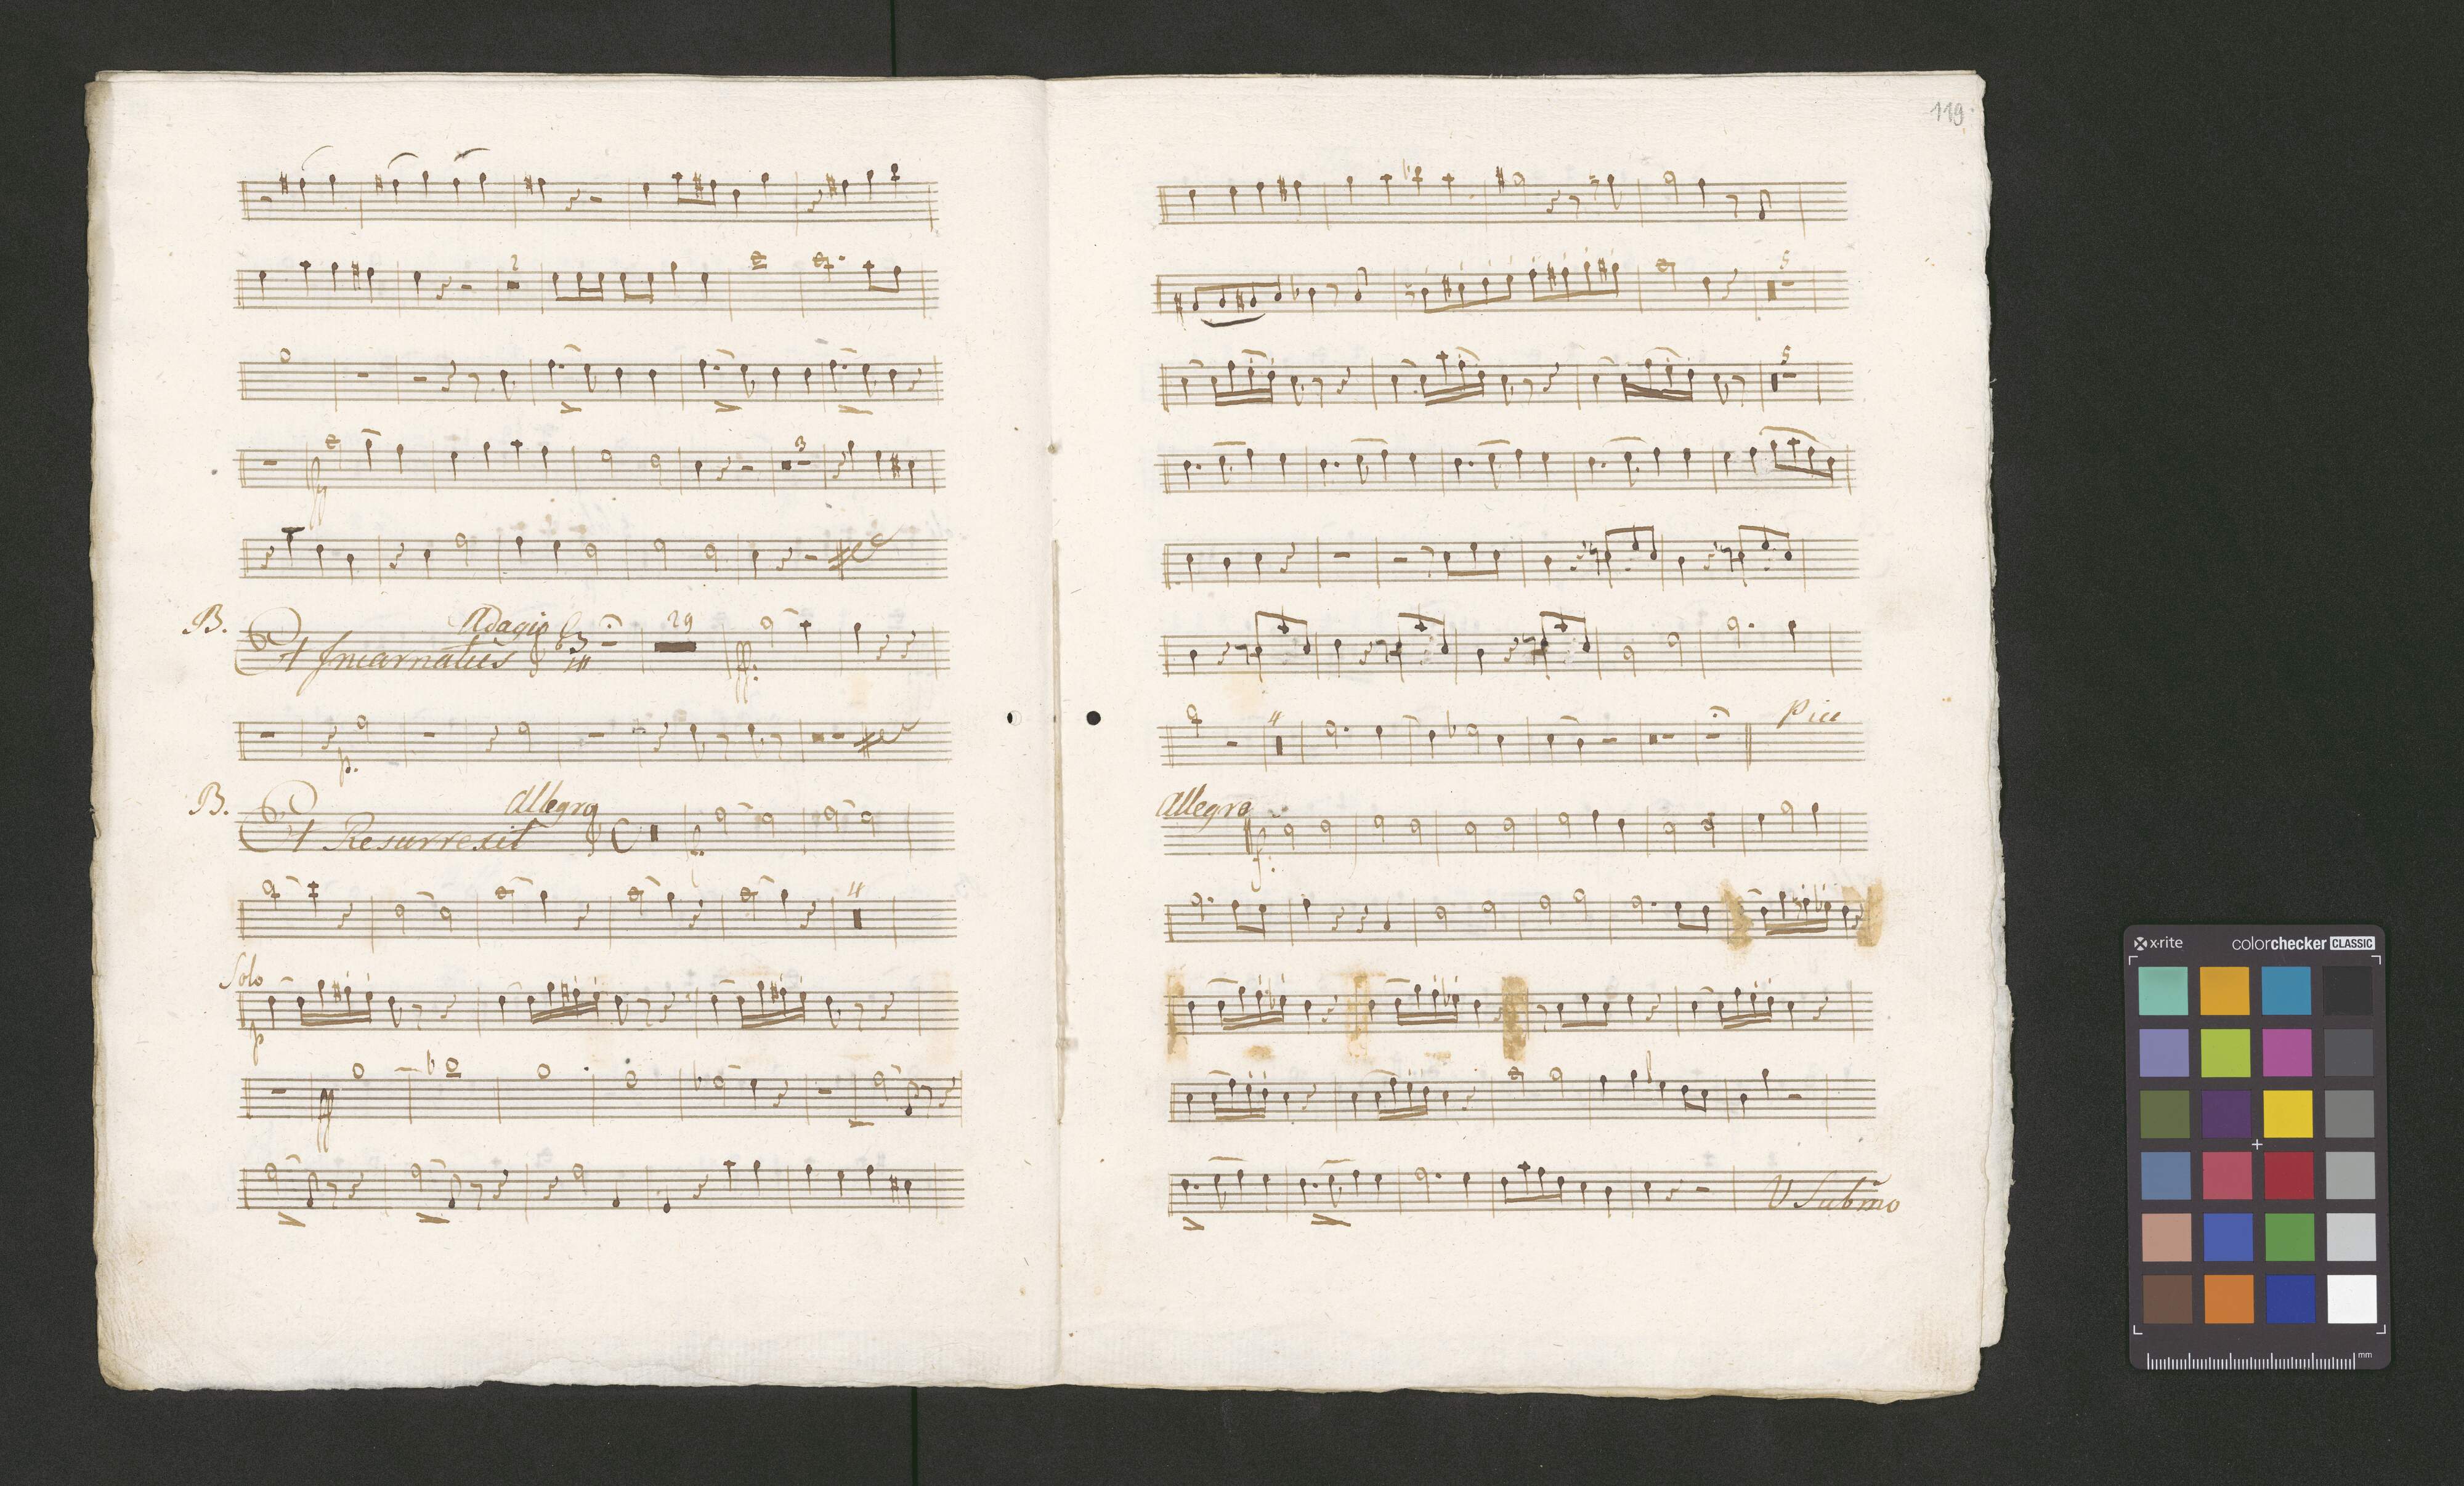 119
2
3
B.
Adagio
29
Et Incarnatus
ff.
p.
B.
Allegro
Et Resurrexit
4
Solo
p
ff
5
5
4
Piu
Allegro
f.
V Subito
x·rite
colorchecker CLASSIC
mm